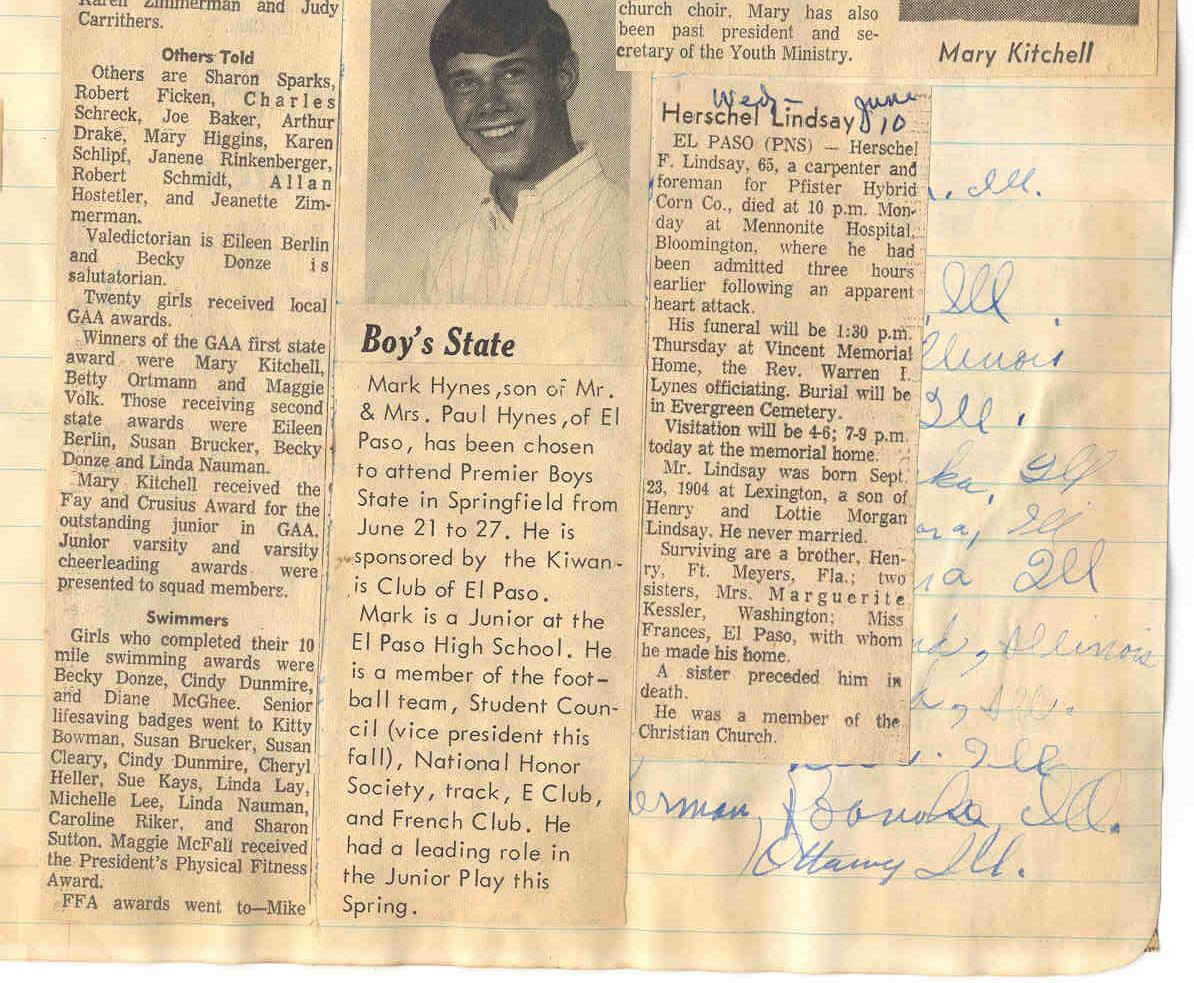 Karen Zimmerman and Judy
Carrithers.
Others Told
Others are Sharon Sparks,
Robert Ficken, Charles
Schreck, Joe Baker, Arthur
Drake, Mary Higgins, Karen
Schlipf, Janene Rinkenberger,
Robert Schmidt, Allan
Hostetler, and Jeanette Zim-
merman.
Valedictorian is Eileen Berlin
and Becky Donze is
salutatorian.
Twenty girls received local
GAA awards.
Winners of the GAA first state
award were Mary Kitchell,
Betty Ortmann and Maggie
Volk. Those receiving second
state awards were Eileen
Berlin, Susan Brucker, Becky
Donze and Linda Nauman.
Mary Kitchell received the
Fay and Crusius Award for the
outstanding junior in GAA.
Junior varsity and varsity
cheerleading awards were
presented to squad members.
Swimmers
Girls who completed their 10
mile swimming awards were
Becky Donze, Cindy Dunmire,
and Diane McGhee. Senior
lifesaving badges went to Kitty
Bowman, Susan Brucker, Susan
Cleary, Cindy Dunmire, Cheryl
Heller, Sue Kays, Linda Lay,
Michelle Lee, Linda Nauman,
Caroline Riker, and Sharon
Sutton. Maggie McFall received
the President's Physical Fitness
Award.
FFA awards went to—Mike
Boy's State
Mark Hynes,son of Mr.
& Mrs. Paul Hynes,of El
Paso, has been chosen
to attend Premier Boys
State in Springfield from
June 21 to 27. He is
sponsored by the Kiwan-
is Club of El Paso.
Mark is a Junior at the
El Paso High School. He
is a member of the foot-
ball team, Student Coun-
cil (vice president this
fall), National Honor
Society, track, E Club,
and French Club. He
had a leading role in
the Junior Play this
Spring.
church choir. Mary has also
been past president and se-
cretary of the Youth Ministry.
Mary Kitchell
Wed- June
10
Herschel Lindsay
EL PASO (PNS) — Herschel
F. Lindsay, 65, a carpenter and
foreman for Pfister Hybrid
Corn Co., died at 10 p.m. Mon-
day at Mennonite Hospital,
Bloomington, where he had
been admitted three hours
earlier following an apparent
heart attack.
His funeral will be 1:30 p.m.
Thursday at Vincent Memorial
Home, the Rev. Warren I.
Lynes officiating. Burial will be
in Evergreen Cemetery.
Visitation will be 4-6; 7-9 p.m.
today at the memorial home.
Mr. Lindsay was born Sept.
23, 1904 at Lexington, a son of
Henry and Lottie Morgan
Lindsay. He never married.
Surviving are a brother, Hen-
ry, Ft. Meyers, Fla.; two
sisters, Mrs. Marguerite
Kessler, Washington; Miss
Frances, El Paso, with whom
he made his home.
A sister preceded him in
death.
He was a member of the
Christian Church.
, Ill.
, Ill.
llinois
Ill.
ka, Ill
ora, Ill
na Ill
nd, Illinois
a, Ill.
Ill
erman, Ill.
Ottawy Ill.